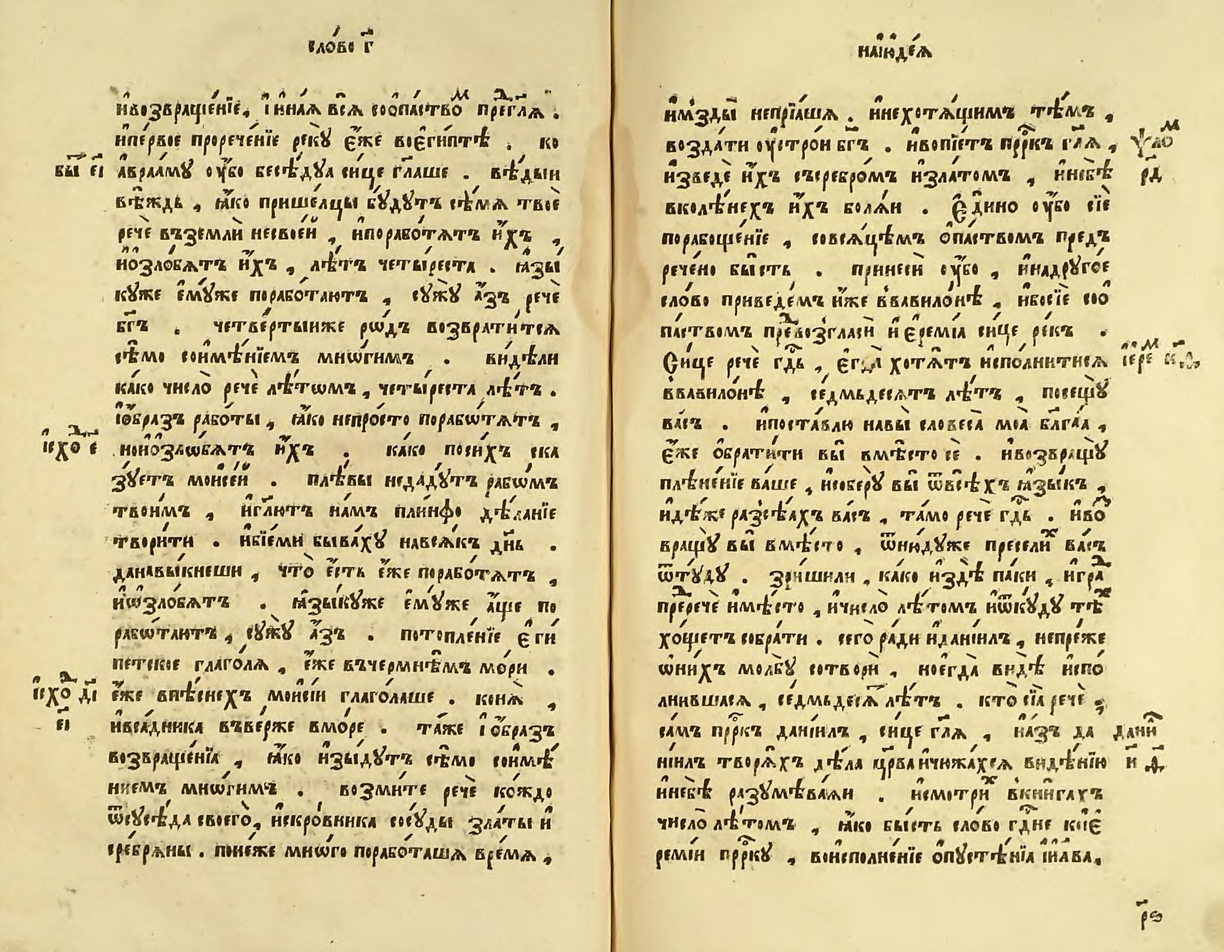 сло́во г҃
ивозвраще́нїе, і҆ина́ѧ всѧ̀ соопа́ство пре́глѧ .
ипе́рвое проречѐнїе рекꙋ̀ є҆́же воєги́птѣ . ко
бы̑ є҃і
авраа́мꙋ оу҆́бо бесѣ́дꙋѧ си́це гл҃аше . вѣ́дыи
вѣ́ждь , ꙗ҆́ко прише́лцы бꙋ́дꙋтъ сѣ́мѧ твоѐ
речѐ въземлѝ несвоѐй , и҆порабо́тѧтъ и҆̀хъ ,
и҆озло́бѧтъ и҆̀хъ , лѣ́тъ четы́реста . ꙗ҆зы́
кꙋже є҆мꙋ́же порабо́таютъ , сꙋжꙋ̀ а҆́зъ речѐ
бг҃ъ . четве́ртыиже рѡ́дъ возврати́тсѧ
сѣ́мо соимѣ́нїемъ мнѡ́гимъ . ви́дѣли
ка́ко число̀ речѐ лѣ́тѡмъ , четы́реста лѣ́тъ .
і҆ѻ҆́бразъ рабо́ты , ꙗ҆́ко непро́сто порабѡ́тѧтъ ,
исхо́ д є҃
ноиѻ҆злѡ́бѧтъ и҆̀хъ . ка́ко поси́хъ ска
зꙋ́етъ моисе́й . пле́вы недадꙋ́тъ рабѡ́мъ
твои́мъ , и҆гл҃ютъ на́мъ пли́нфо дѣ́ланїе
твори́ти . и҆бїе́ми быва́хꙋ навсѧ́къ дн҃ь .
данавы́кнеши , что̀ є҆́сть є҆́же порабо́тѧтъ ,
и҆ѡзло́бѧтъ . ꙗ҆зы́кꙋже є҆мꙋ́же а҆́ще по
рабѡ́таютъ , сꙋжꙋ̀ а҆́зъ . потопле́нїе є҆гѝ
петское глаго́лѧ , є҆́же въчермнѣ́мъ мо́ри .
исхо́ д д҃і
є҆́же впѣ́снехъ моисе́й глаго́лаше . конѧ̀ ,
є҃і
ивса́дника въве́рже вмо́ре . та́же і҆ѻ҆́бразъ
возвраще́нїѧ , ꙗ҆́ко изы́дꙋтъ сѣ́мо соимѣ́
нием̀ъ мнѡ́гимъ . возми́те речѐ ко́ждо
ѿсꙋсѣ́да своего̀, искро́вника сосꙋ́ды зла́ты и҆
сребрѧ́ны . поне́же мнѡ́го порабо́ташѧ вре́мѧ ,
наіюде́ѧ
и҆мзды̀ непрїѧ́шѧ . инехотѧ́щимъ тѣ́мъ ,
возда́ти оу҆стро́и бг҃ъ . ивопїе́тъ пр҇ркъ гл҃ѧ ,
ѱало м
изведѐ и҆́хъ съсребро́мъ изла́томъ , инебѣ̀
р҃д
вколѣ́нехъ и҆́хъ болѧ́и . Є҆ди́но оу҆́бо сїѐ
порабоще́нїе , совсѧ́цѣмъ ѻ҆па́ствомъ пре́дъ
рече́но бы́сть . принесѝ оу҆́бо , инадрꙋго́е
сло́во приведе́мъ и҆́же ввавило́нѣ , ибосїѐ соо
па́ствомъ превозгласѝ и є҆ремі́а си́це рекъ .
Си́це речѐ гд҇ь , є҆гда̀ хотѧ́тъ испо́лнитисѧ
ввавило́нѣ , се́дмьдесѧтъ лѣ́тъ , посещꙋ̀
ва́съ . ипоста́влю на́вы словеса̀ моѧ̀ бл҃га́ѧ ,
є҆́же ѻ҆брати́ти вы̀ вмѣ́сто сѐ . ивозвращꙋ̀
плѣне́нїе ва́ше , исоберꙋ̀ вы̀ ѿвсѣ́хъ ꙗ҆зы́къ ,
идѣ́же разсѣ́ѧхъ ва́съ , та́мо речѐ гд҇ь . ивоз
вращꙋ̀ вы̀ вмѣ́сто , ѿню́дꙋже пресели́х ва́съ
ѿтꙋ́дꙋ . зри́шили , ка́ко и҆здѣ̀ па́ки , игра д
преречѐ имѣ́сто , ичисло̀ лѣ́томъ иѿкꙋ́дꙋ тѣ́х
хо́щетъ собра́ти . сего̀ ра́ди идании́лъ , непре́же
ѡ҆ни́хъ молбꙋ̀ сотворѝ , ноегда̀ ви́дѣ испо́
лнившасѧ , се́дмьдесѧ т лѣ́тъ . кто̀ сїѧ̀ речѐ ;
са́мъ пр҇ркъ дании́лъ , си́це гл҃ѧ , иа҆́зъ да
дани
нии́лъ творѧ́хъ дѣла̀ цр҃ва ичюжа́хсѧ видѣ́нїю
и҃ д҃
инебѣ̀ разꙋмѣва́ѧи . исмотри́х вкни́гахъ
число̀ лѣ́томъ , ꙗ҆́ко бы́сть сло́во гд҇не коїє҆
ремі́и пр҇ркꙋ , воисполне́нїе ѻ҆пꙋстѣ́нїѧ і҆и҃лва.
р҃ѕ